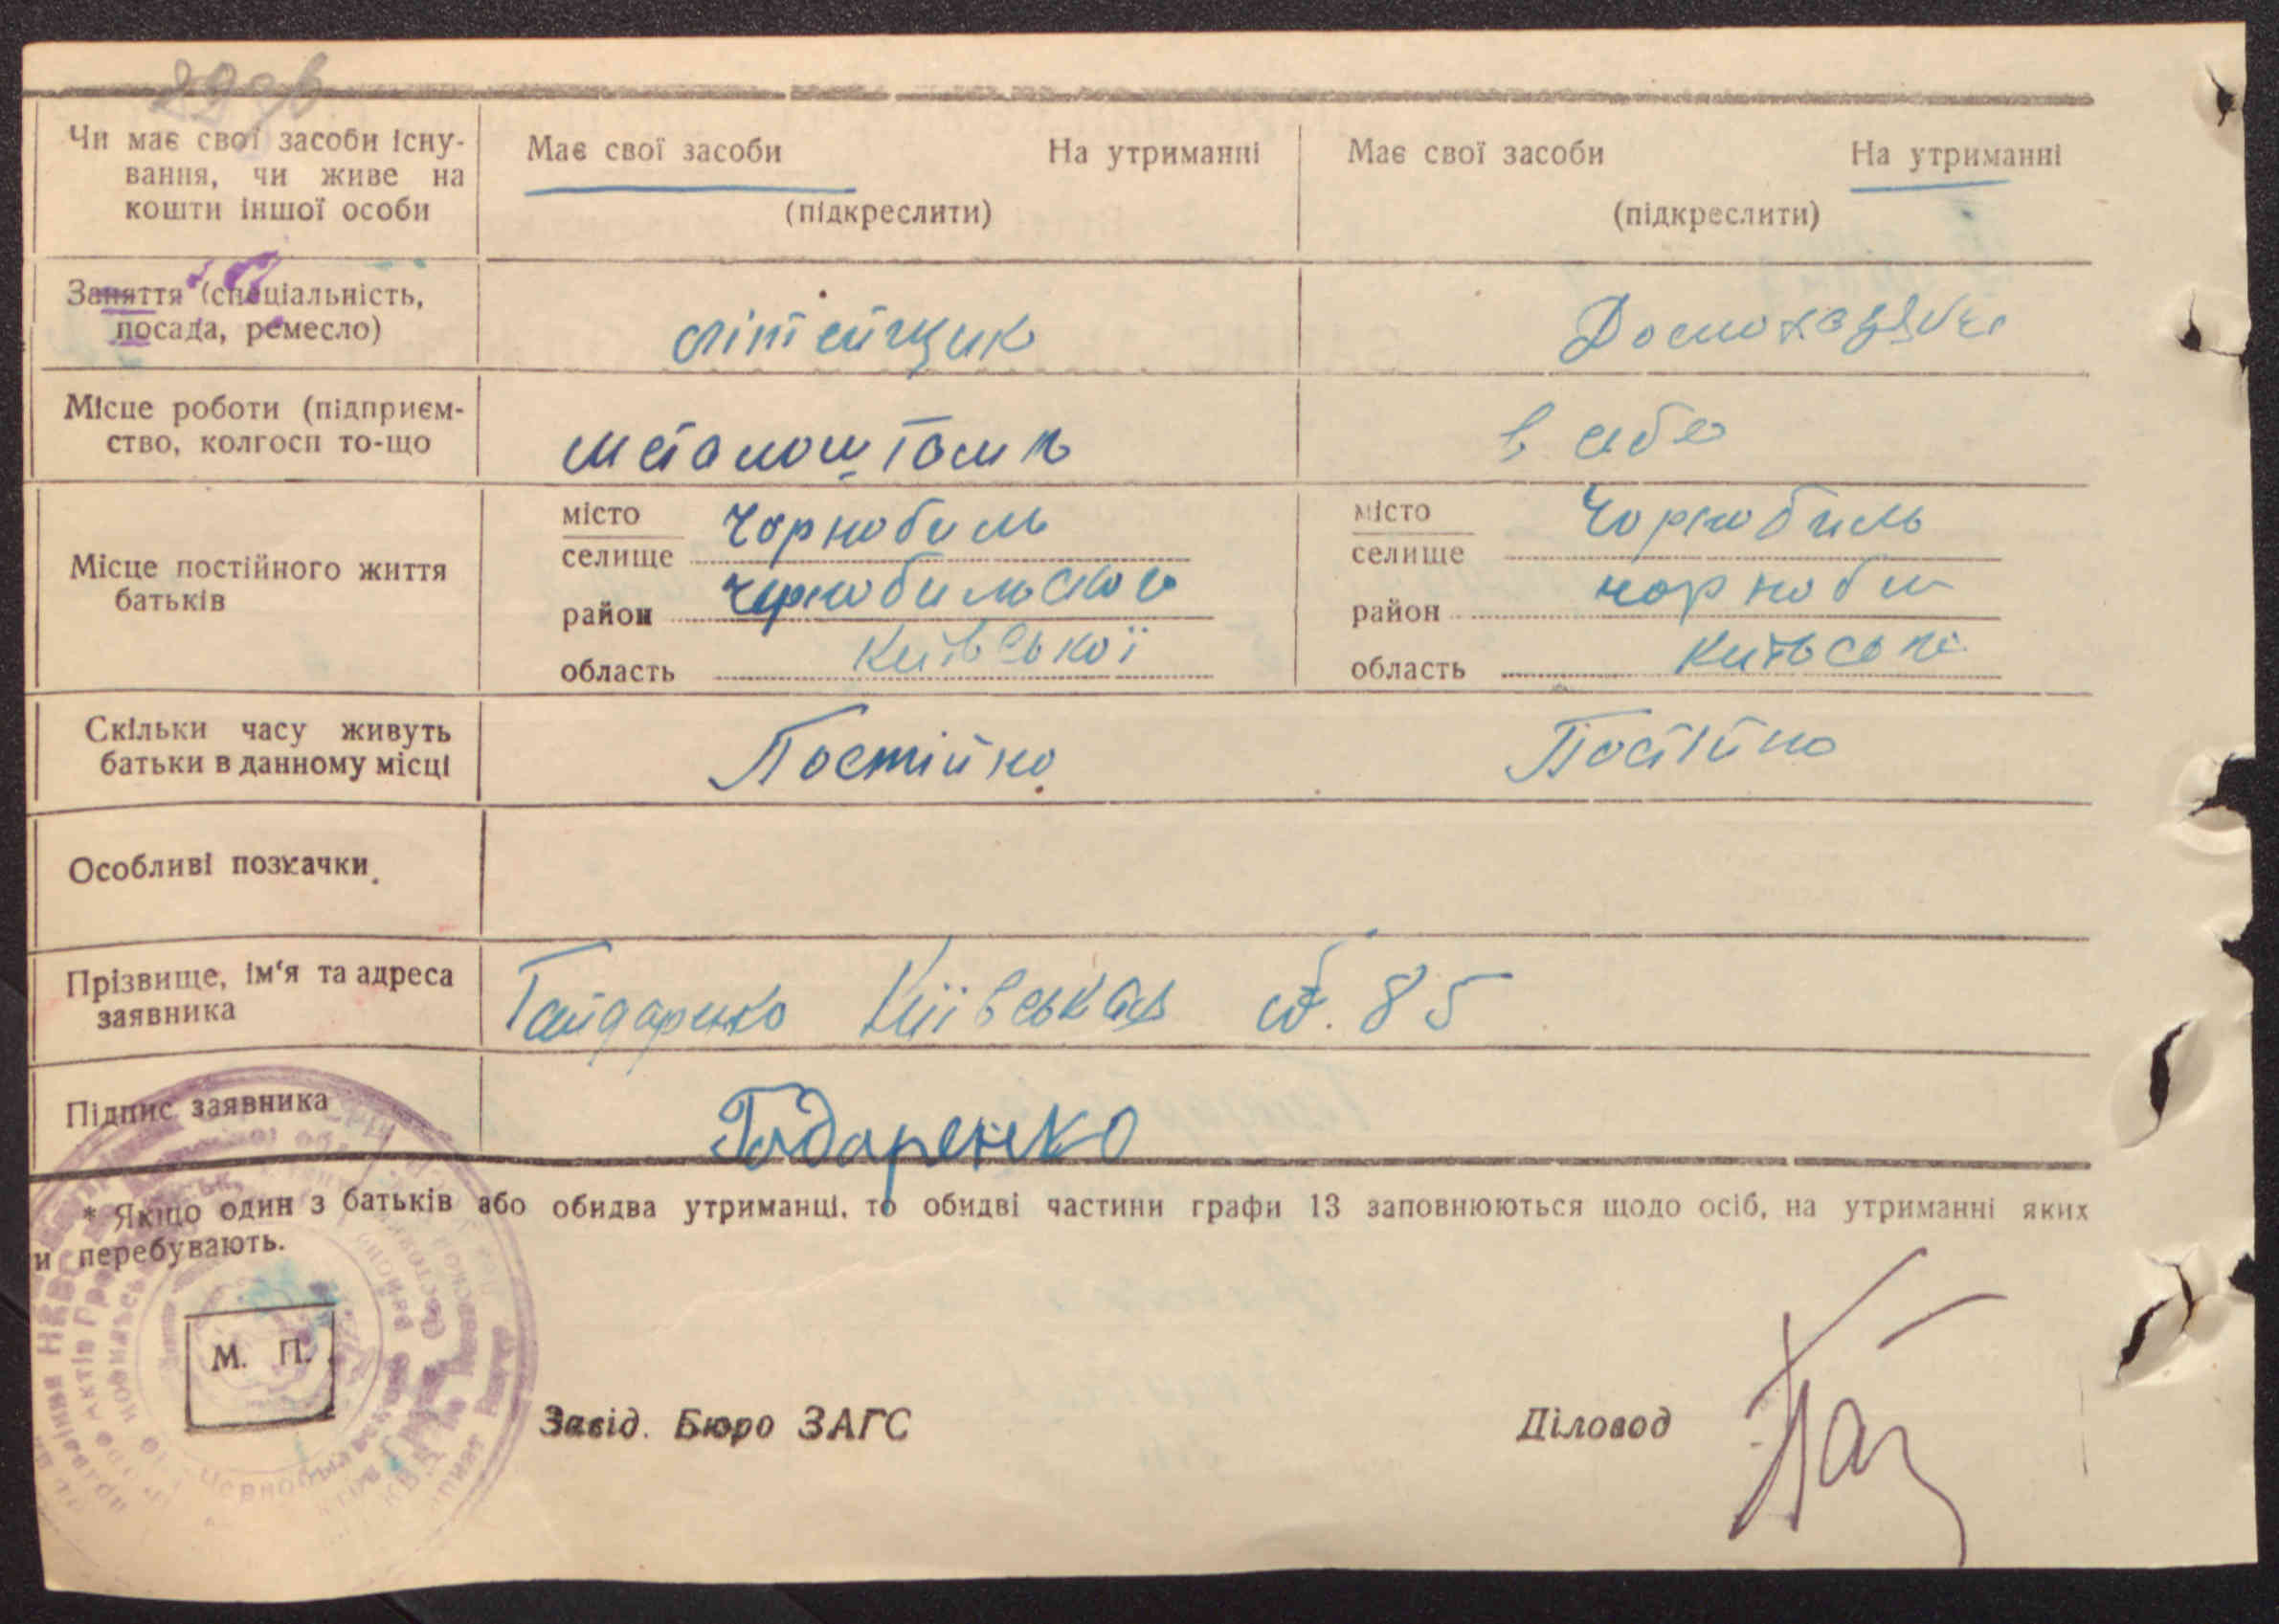 Чи має свої засоби існу-
вання, чи живе на
кошти іншої особи
Має свої засоби На утриманні
(підкреслити)
Має свої засоби На утриманні
(підкреслити)
Заняття (спеціальність,
посада, ремесло)
літейщик
Домохазяйка
Місце роботи (підприєм-
ство, колгосп то-що
металоштамп
Місце постійного життя
батьків
місто Чорнобиль
селище
район Чорнобильского
область Київської
місто Чорнобиль
селище
район чорноби
область Київська
Скільки часу живуть
батьки в данному місці
Постійно
Постійно
Особливі позначки
Прізвище, ім'я та адреса
заявника
Гайдаренко Київськая 85
Підпис заявника
Гадаренко
* Якщо один з батьків або обидва утриманці, то обидві частини графи 13 заповнюються щодо осіб, на утриманні яких
и перебувають.
М. П.
Завід. Бюро ЗАГС
Діловод